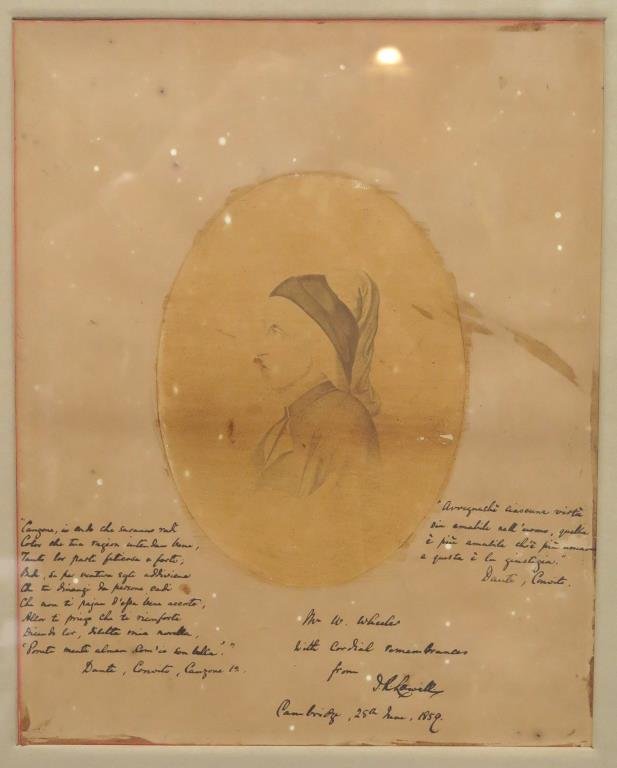 "Canzone, io credo che saranno radi
Color che tua ragion intendan bene,
Tanto lor parli faticosa e forte;
Onde, se per ventura egli addiviene
Che tu dinanzi da persone vadi
Che non ti pajan d'essa bene accorte,
Allor ti priego che ti riconforte
Dicendo lor, diletta mia novella,
"Ponete mente almen com'io son bella"."
Dante, Convito, Canzone 1a.
"Avvegnachè ciascuna virtù
sia amabile nell'uomo, quella
è più amabile ch'è più umana
e questa è la giustizia."
Dante, Convito.
Mr W. Wheeler
With Cordial remembrances
from
J R Lowell
Cambridge, 25th June, 1859.